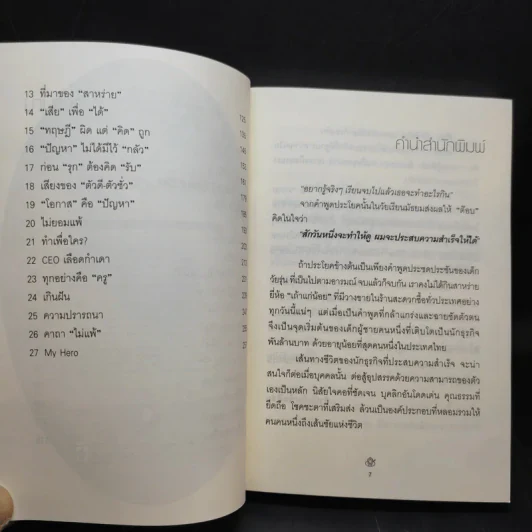 13 ที่มาของ "สาหร่าย"
14 "เสีย" เพื่อ "ได้"
15 "ทฤษฎี" ผิด แต่ "คิด" ถูก
16 "ปัญหา" ไม่ได้มีไว้ "กลัว"
17 ก่อน "รุก" ต้องคิด "รับ"
18 เสียงของ "ตัวดี-ตัวชั่ว"
19 "โอกาส" คือ "ปัญหา"
20 ไม่ยอมแพ้
21 ทำเพื่อใคร?
22 CEO เลือดกำเดา
23 ทุกอย่างคือ "ครู"
24 เกินฝัน
25 ความปรารถนา
26 คาถา "ไม่แพ้"
27 My Hero
คำนำสำนักพิมพ์
"อยากรู้จริงๆ เรียนจบไปแล้วเธอจะทำอะไรกิน"
จากคำพูดประโยคนั้นในวัยเรียนมัธยมส่งผลให้ "ต๊อบ"
คิดในใจว่า
"สักวันหนึ่งจะทำให้ดู ผมจะประสบความสำเร็จให้ได้"
ถ้าประโยคข้างต้นเป็นเพียงคำพูดประชดประชันของเด็ก
วัยรุ่น ที่เป็นไปตามอารมณ์ จบแล้วก็จบกัน เราคงไม่ได้กินสาหร่าย
ยี่ห้อ "เถ้าแก่น้อย" ที่มีวางขายในร้านสะดวกซื้อทั่วประเทศอย่าง
ทุกวันนี้แน่ๆ แต่เมื่อเป็นคำพูดที่กล้าแกร่งและอาย
จึงเป็นจุดเริ่มต้นของเด็กผู้ชายคนหนึ่งที่เติบโตเป็นนักธุรกิจ
พันล้านบาท ด้วยอายุน้อยที่สุดคนหนึ่งในประเทศไทย
เส้นทางชีวิตของนักธุรกิจที่ประสบความสำเร็จ จะน่า
สนใจก็ต่อเมื่อบุคคลนั้น ต่อสู้อุปสรรคด้วยความสามารถของตัว
เองเป็นหลัก นิสัยใจคอที่ชัดเจน บุคลิกอันโดดเด่น คุณธรรมที่
ยึดถือ โชคชะตาที่เสริมส่ง ล้วนเป็นองค์ประกอบที่หลอมรวมให้
คนคนหนึ่งถึงเส้นชัยแห่งชีวิต
7